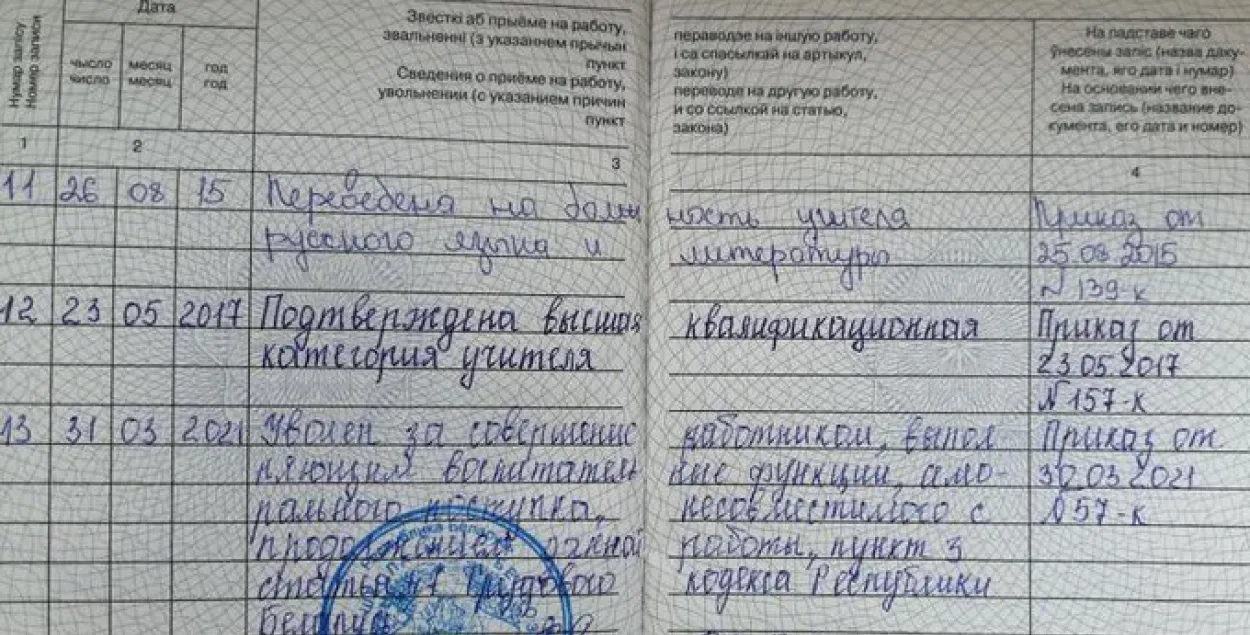 Нумар запісу
Номер записи
Дата
чысло
число
месяц
месяц
год
год
Звесткі аб прыёме на работу,
звальненні (з указаннем прычын
пункт
Сведения о приёме на работу,
увольнении (с указанием причин
пункт
пераводзе на іншую работу,
і са спасылкай на артыкул,
закону)
переводе на другую работу,
и со ссылкой на статью,
закона)
На падставе чаго
ўнесены запіс (назва даку-
мента, яго дата і нумар)
На основании чего вне-
сена запись (название до-
кумента, его дата и номер)
1 2 3 4
11 26 08 15 Переведена на долж ность учителя Приказ от
русского языка и литературы 25.08.2015
N 139-к
12 23 05 2017 Подтверждена высшая квалификационная Приказ от
категория учителя 23.05.2017
N 157-к
13 31 03 2021 Уволен за совершение работником, выпол Приказ от
няющим воспитатель ные функции, амо- 30.03.2021
рального поступка, несовместимого с N 57-к
продолжением данной работы, пункт 3
статьи 47 Трудового кодекса Республики
Беларусь